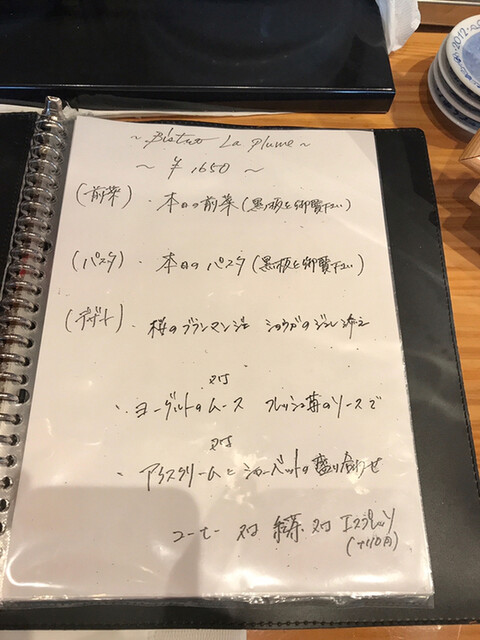 ~ Bistro La Plume ~
~ ¥1650 ~
(前菜) ・本日の前菜(黒板を御覧下さい)
(パスタ) ・本日のパスタ(黒板を御覧下さい)
(デザート) ・桜のブランマンジェ ショウガのジュレ添え
又は
・ヨーグルトのムース フレッシュ苺のソースで
又は
・アイスクリームとシャーベットの盛り合わせ
コーヒー 又は 紅茶 又は エスプレッソ
(+110円)
2012